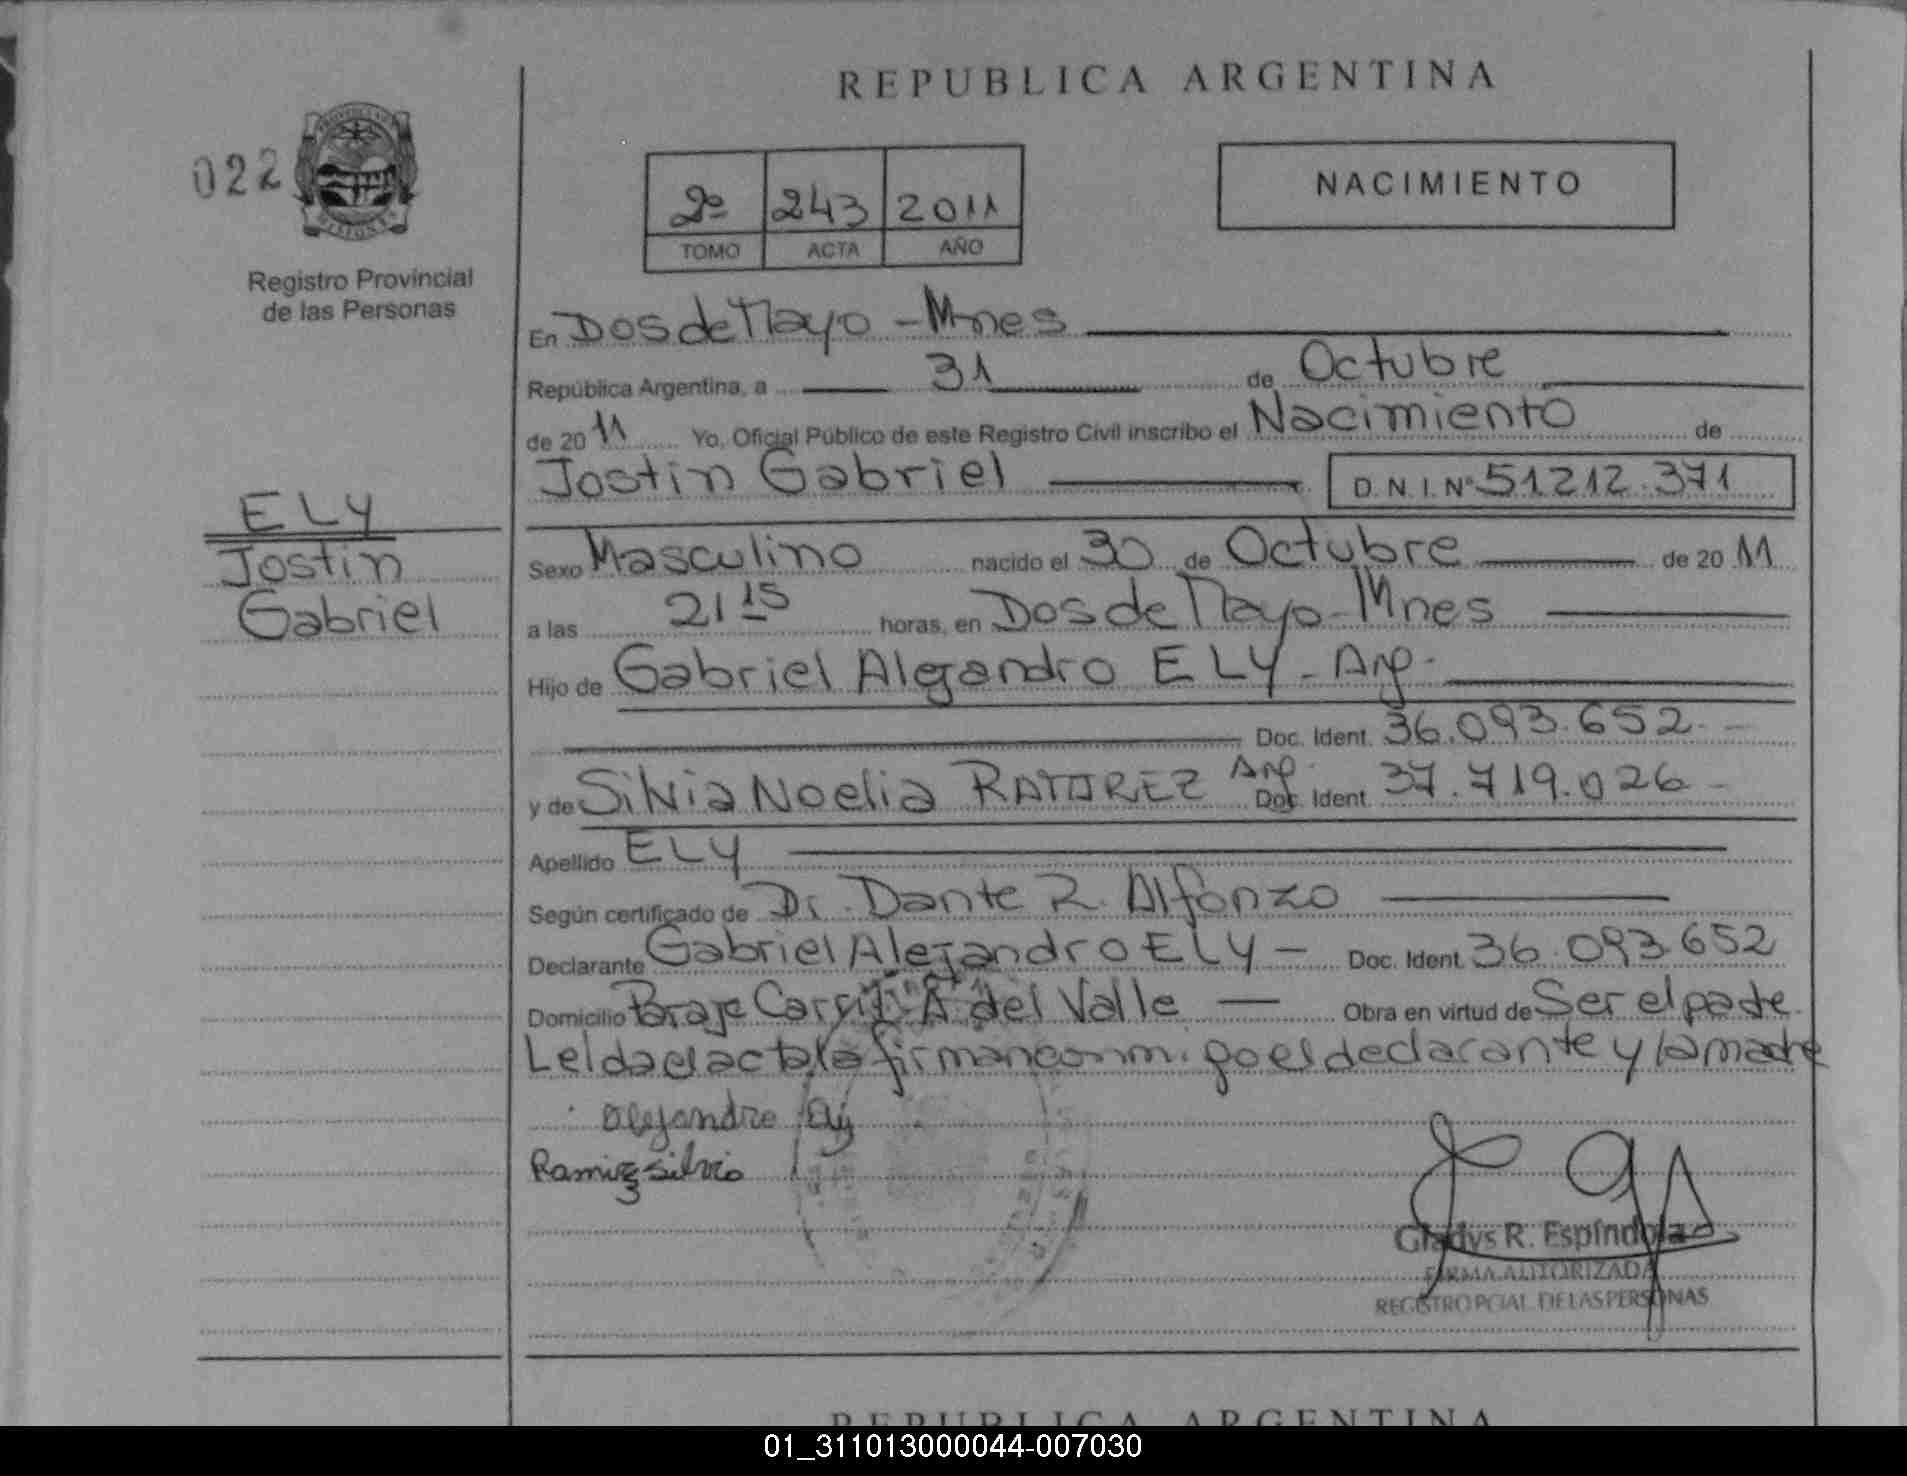 REPUBLICA ARGENTINA
022
2º 243 2011
TOMO ACTA AÑO
NACIMIENTO
Registro Provincial
de las Personas
En Dos de Mayo - Mnes
República Argentina, a 31 de Octubre
de 2011 Yo, Oficial Público de este Registro Civil inscribo el Nacimiento de
Jostin Gabriel D.N.I.Nº 51.212.371
ELY
Jostin
Gabriel
Sexo Masculino nacido el 30 de Octubre de 2011
a las 21 15 horas, en Dos de Mayo - Mnes
Hijo de Gabriel Alejandro ELY - Arg.
Doc. Ident. 36.093.652 -
y de Silvia Noelia RAMIREZ Arg. Doc. Ident. 37.719.026 -
Apellido ELY
Según certificado de Dr. Dante R. Alfonzo
Declarante Gabriel Alejandro ELY - Doc. Ident. 36.093.652
Domicilio A. del Valle - Obra en virtud de Ser el padre
Leida el acta la firman conmigo el declarante y la madre
Alejandro Ely
Ramirez Silvia
Gladys R. Espíndola
FIRMA AUTORIZADA
REGISTRO PCIAL. DE LAS PERSONAS
REPUBLICA ARGENTINA
01_311013000044-007030